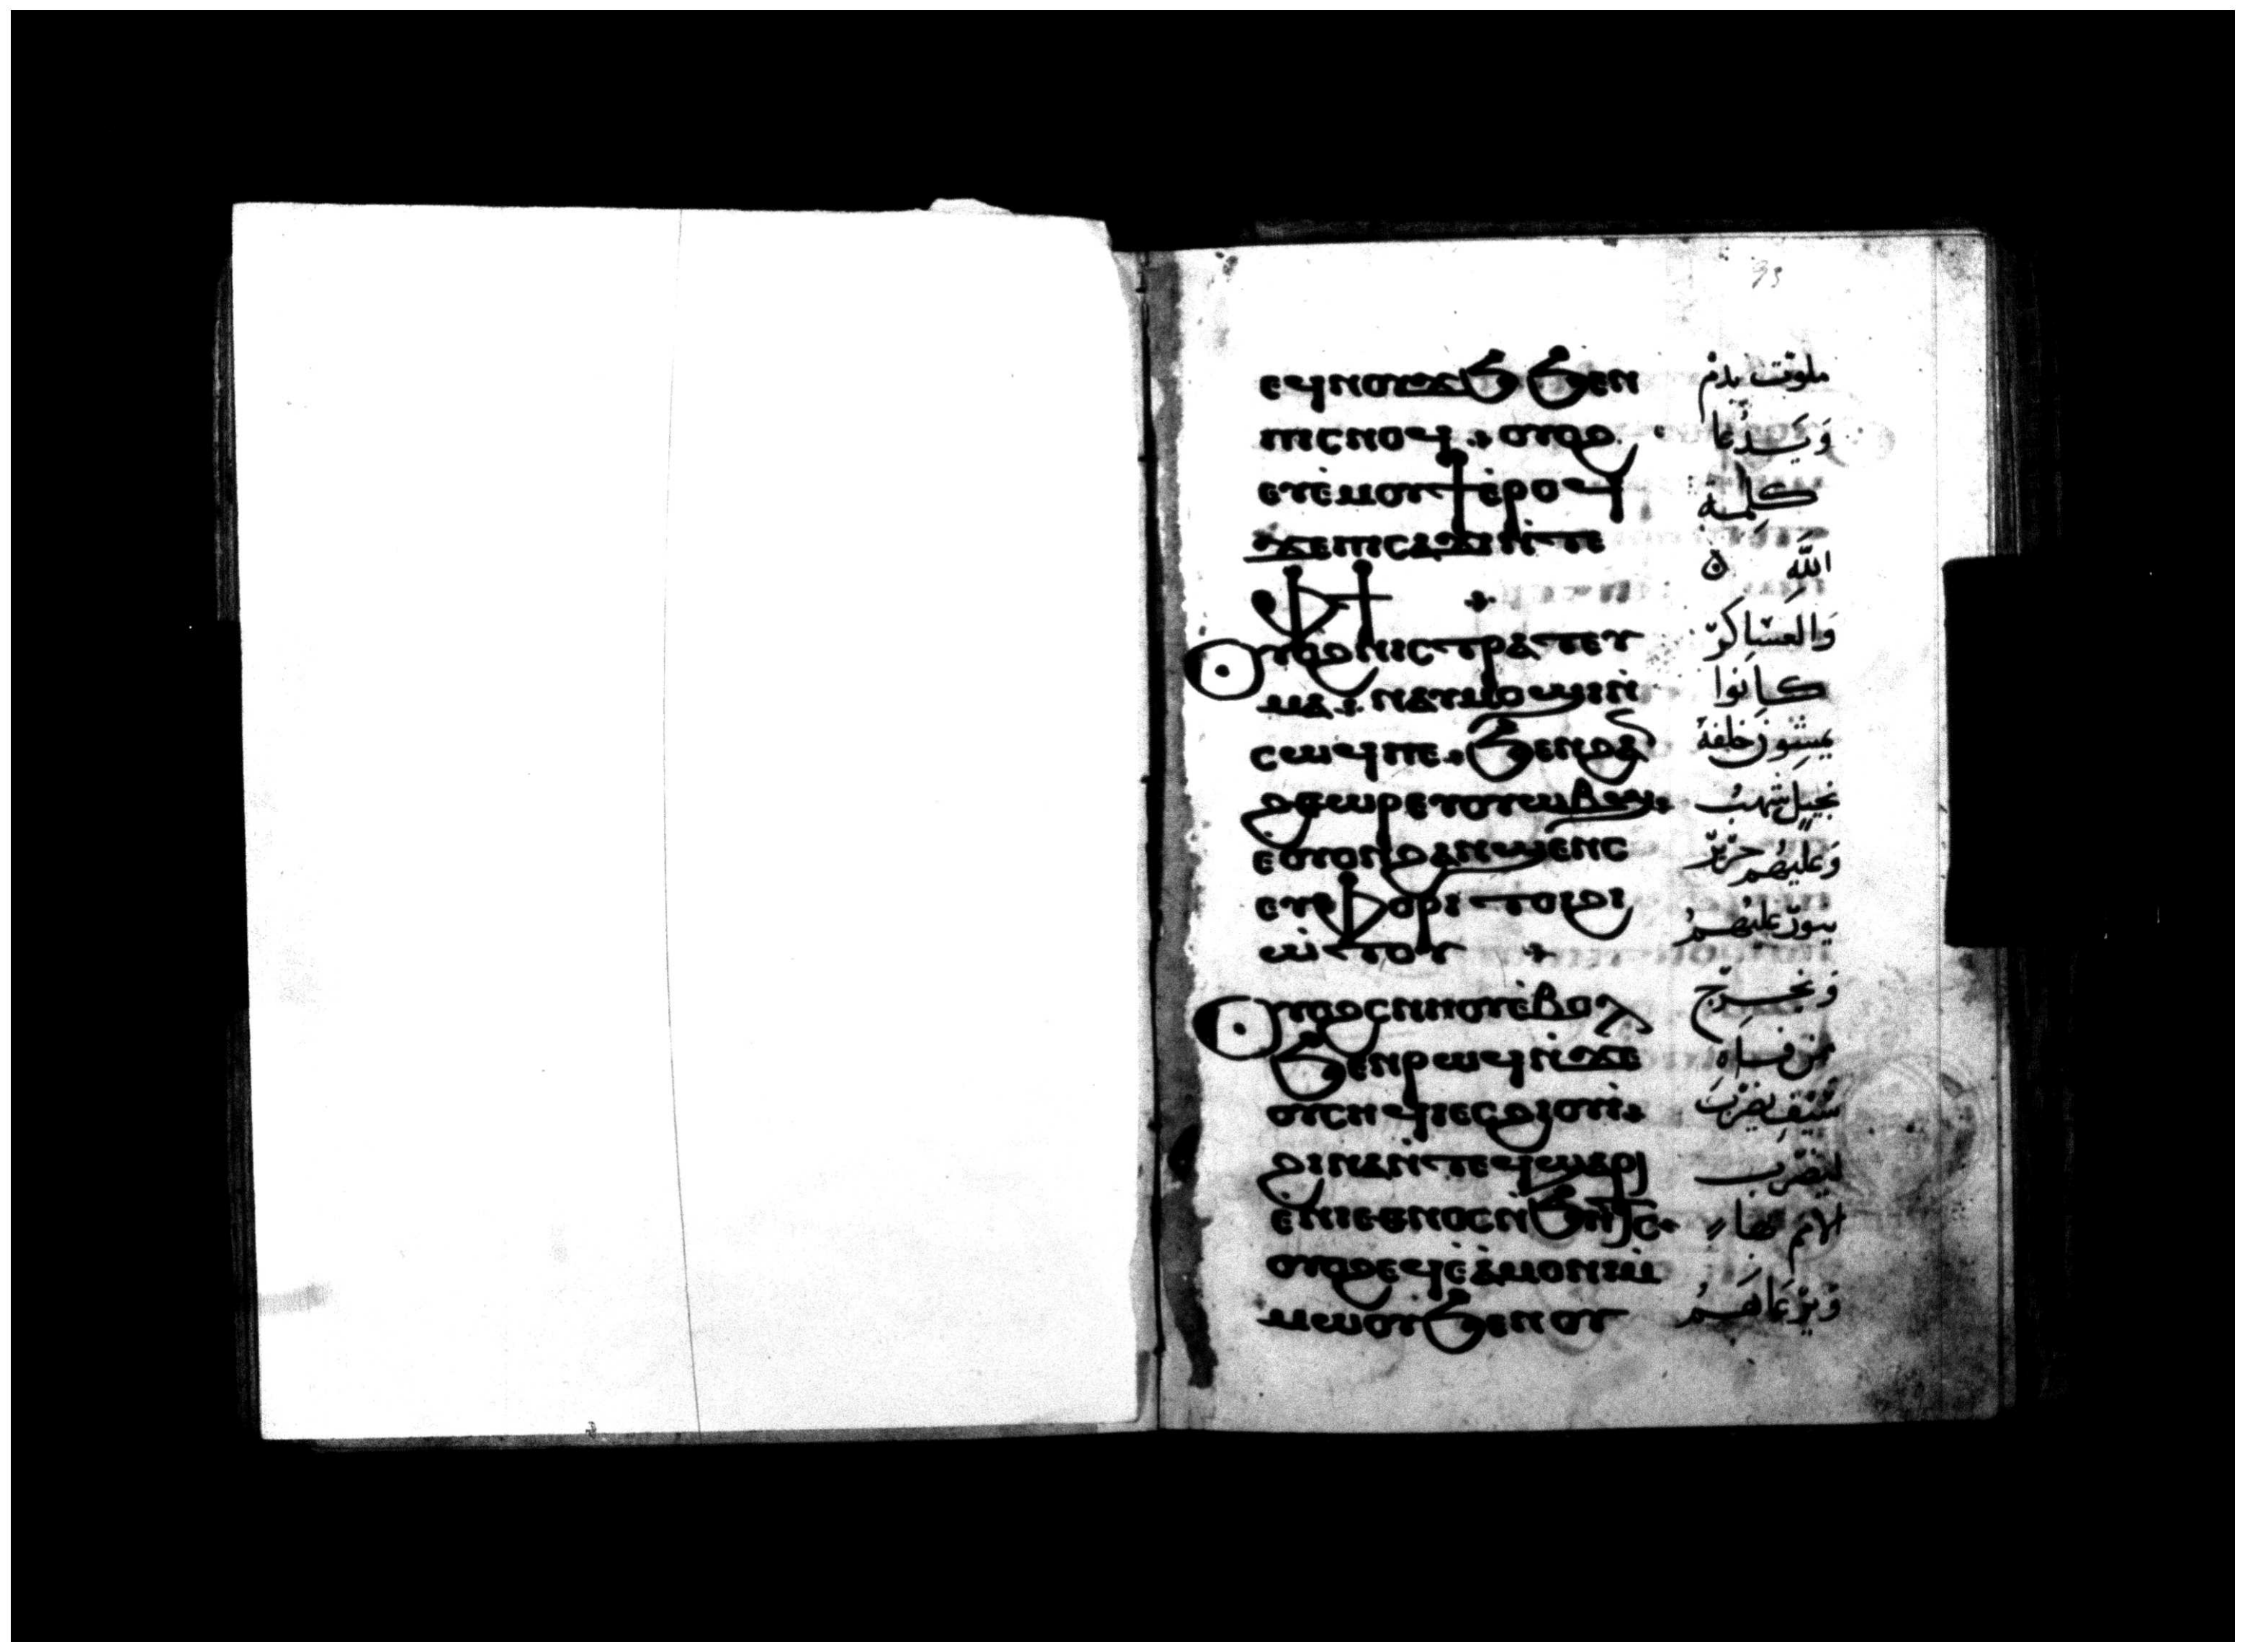 ⲉϥⲛⲟⲩϫϧ ϧⲉⲛ
ⲡⲓⲥⲛⲟϥ . ⲟⲩⲟϩ
ⲉⲩⲉ̀ⲙⲟⲩϯⲉ̀ⲣⲟϥ
ϫⲉⲡⲓⲥⲁϫⲓⲛ̀ⲧⲉ
ⲫϯ
ⲟⲩⲟϩⲛⲓⲥⲧⲣⲁⲧⲉⲩ
ⲙⲁ . ⲛⲁⲩⲙⲟϣⲓⲛ̀
ⲥⲱϥⲡⲉ . ϧⲉⲛϩⲁ
ϩⲑⲱⲣⲉⲩⲟⲩⲱⲃϣ .
ⲉⲟⲩⲟⲛϩⲁⲛϣⲉⲛⲥ
ⲉⲩⲉⲫⲟⲣⲓ ⲧⲟⲓϩⲓ
ⲱ̀ⲧⲟⲩ
ⲟⲩⲟϩⲥⲛⲏⲟⲩⲉ̀ⲃⲟⲗ
ϧⲉⲛⲣⲱϥⲛ̀ϫⲉ
ⲟⲩⲥⲏϥⲓⲉⲥϩⲓⲟⲩⲓ̀ .
ϩⲓⲛⲁⲛ̀ⲧⲉϥϣⲁⲣⲓ
ⲉⲛⲓⲉⲑⲛⲟⲥⲛ̀ϧⲏⲧⲥ .
ⲟⲩⲟϩⲉϥⲉ̀ⲁ̀ⲙⲟⲛⲓⲙ̀
ⲙⲱⲟⲩϧⲉⲛⲟⲩ
ملوثت بدم
وَيَدْعَا
كلمة
اللّه
وَالعَسَاكر
كانوا
يمشون خلفه
بخيل شهب
وَعليهم حرير
وَيخرج
من فاه
سَيْف يضرب
ليضرب
الامم بها
وَيرعاهم